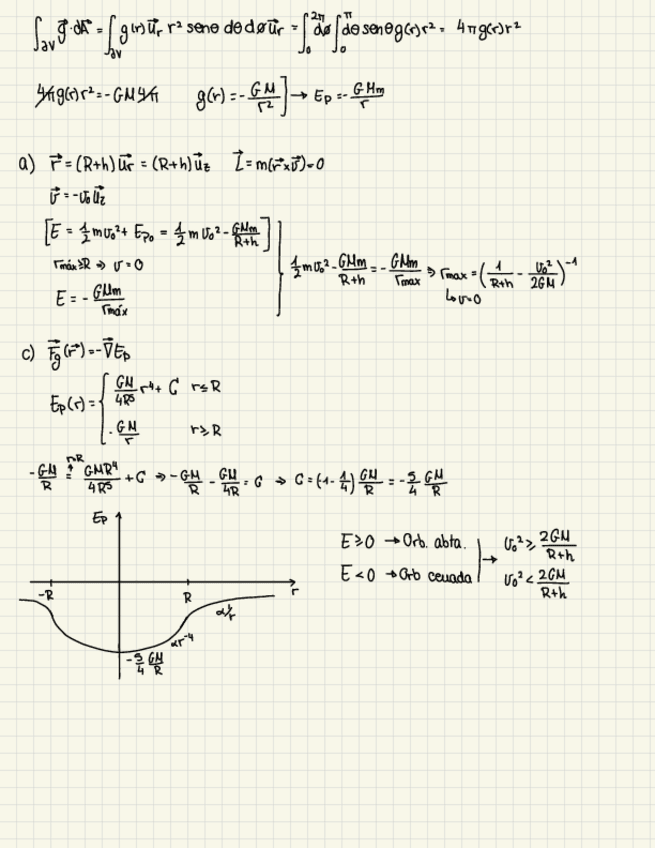 ∫_∂V g⃗·dA⃗ = ∫_∂V g(r) u⃗r r² senθ dθ dø u⃗r = ∫₀^2π dø ∫₀^π dθ senθ g(r) r² = 4π g(r) r²
4π g(r) r² = -GM 4π    g(r) = -GM/r² ] → Ep = -GMm/r
a) r⃗ = (R+h) u⃗r = (R+h) u⃗z    L⃗ = m(r⃗×v⃗) = 0
v⃗ = -v₀ u⃗z
[E = 1/2 m v₀² + Ep₀ = 1/2 m v₀² - GMm/(R+h)]
rmáx ≥ R ⇒ v = 0
E = - GMm/rmáx
1/2 m v₀² - GMm/(R+h) = - GMm/rmax ⇒ rmax = (1/(R+h) - v₀²/2GM)⁻¹
↳ v=0
c) F⃗g(r⃗) = -∇⃗Ep
Ep(r) = { GM/4R⁵ r⁴ + C    r ≤ R
-GM/r    r ≥ R
r=R
-GM/R = GMR⁴/4R⁵ + C ⇒ -GM/R - GM/4R = C ⇒ C = (-1-1/4) GM/R = -5/4 GM/R
Ep
-R    R    r
α 1/r
αr⁻⁴
-5/4 GM/R
E ≥ 0 → Orb. abta.    v₀² ≥ 2GM/(R+h)
→
E < 0 → Orb cerrada    v₀² < 2GM/(R+h)